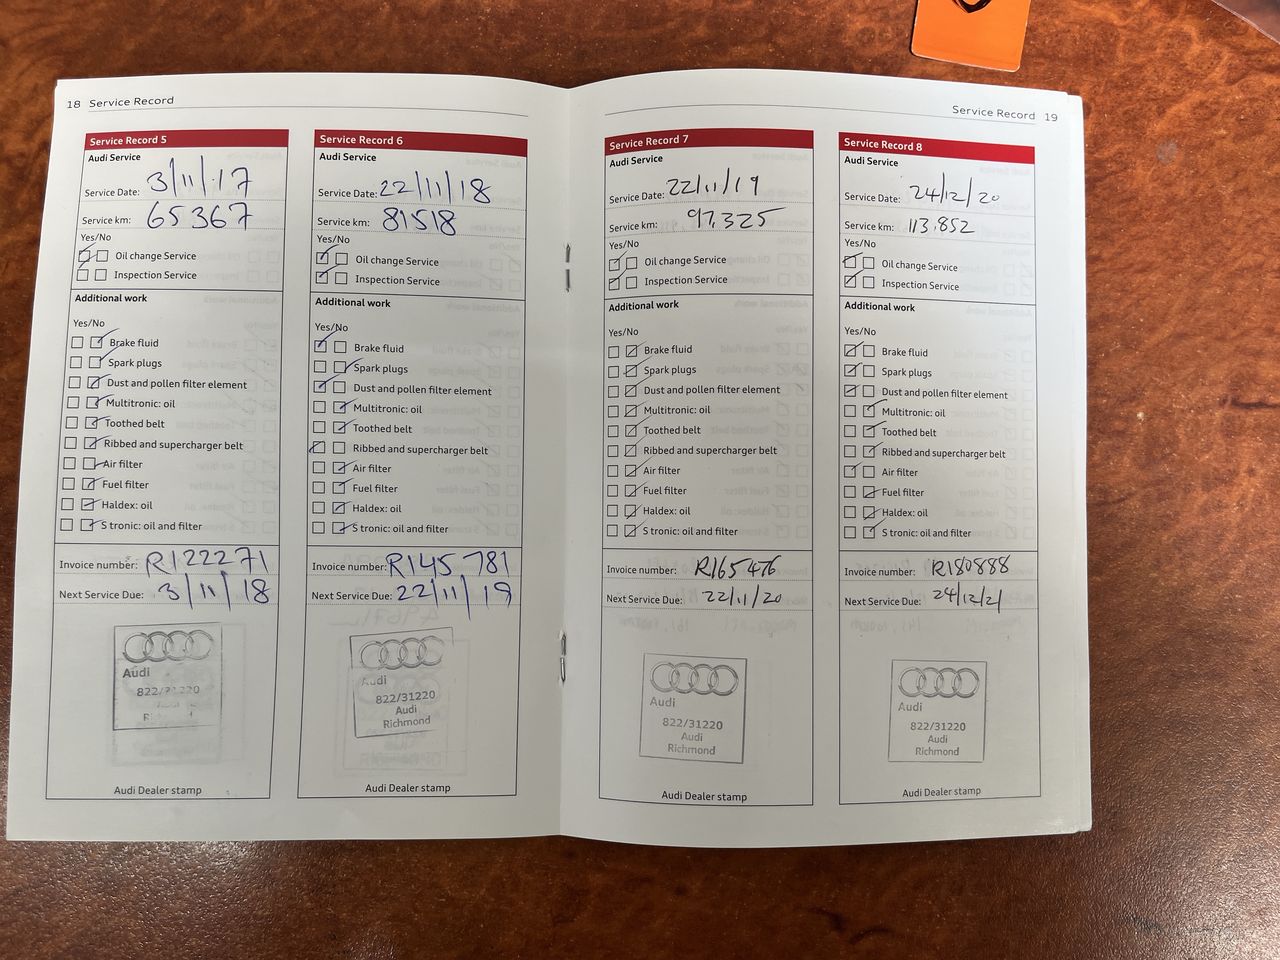 18 Service Record
Service Record 5
Audi Service
Service Date: 3/11/17
Service km: 65367
Yes/No
Oil change Service
Inspection Service
Additional work
Yes/No
Brake fluid
Spark plugs
Dust and pollen filter element
Multitronic: oil
Toothed belt
Ribbed and supercharger belt
Air filter
Fuel filter
Haldex: oil
S tronic: oil and filter
Invoice number: R122271
Next Service Due: 3/11/18
Audi
822/31220
Audi Dealer stamp
Service Record 6
Audi Service
Service Date: 22/11/18
Service km: 81518
Yes/No
Oil change Service
Inspection Service
Additional work
Yes/No
Brake fluid
Spark plugs
Dust and pollen filter element
Multitronic: oil
Toothed belt
Ribbed and supercharger belt
Air filter
Fuel filter
Haldex: oil
S tronic: oil and filter
Invoice number: R145 781
Next Service Due: 22/11/19
Audi
822/31220
Audi
Richmond
Audi Dealer stamp
Service Record 19
Service Record 7
Audi Service
Service Date: 22/11/19
Service km: 97,325
Yes/No
Oil change Service
Inspection Service
Additional work
Yes/No
Brake fluid
Spark plugs
Dust and pollen filter element
Multitronic: oil
Toothed belt
Ribbed and supercharger belt
Air filter
Fuel filter
Haldex: oil
S tronic: oil and filter
Invoice number: R165476
Next Service Due: 22/11/20
Audi
822/31220
Audi
Richmond
Audi Dealer stamp
Service Record 8
Audi Service
Service Date: 24/12/20
Service km: 113,852
Yes/No
Oil change Service
Inspection Service
Additional work
Yes/No
Brake fluid
Spark plugs
Dust and pollen filter element
Multitronic: oil
Toothed belt
Ribbed and supercharger belt
Air filter
Fuel filter
Haldex: oil
S tronic: oil and filter
Invoice number: R180888
Next Service Due: 24/12/21
Audi
822/31220
Audi
Richmond
Audi Dealer stamp